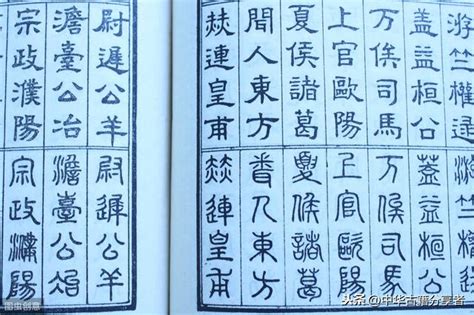 游竺權逯
蓋益桓公
万俟司馬
上官歐陽
夏侯諸葛
聞人東方
赫連皇甫
尉遲公羊
澹臺公冶
宗政濮陽
游竺權逯
蓋益桓公
万俟司馬
上官歐陽
夏侯諸葛
聞人東方
赫連皇甫
尉遲公羊
澹臺公冶
宗政濮陽
图虫创意
头条 @中华古籍分享者